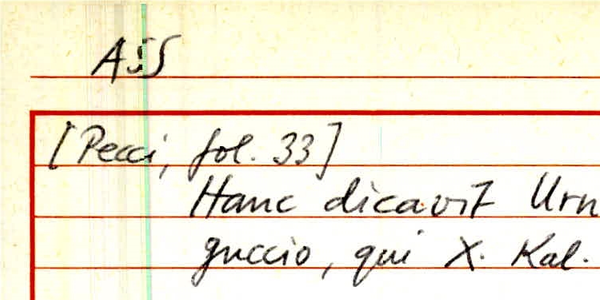 ASS
[Pecci, fol. 33]
Hanc dicavit Urn
guccio, qui X. Kal.